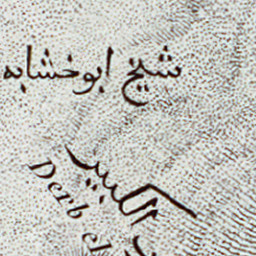 شيخ ابو خشابه
الكبير
Derb el